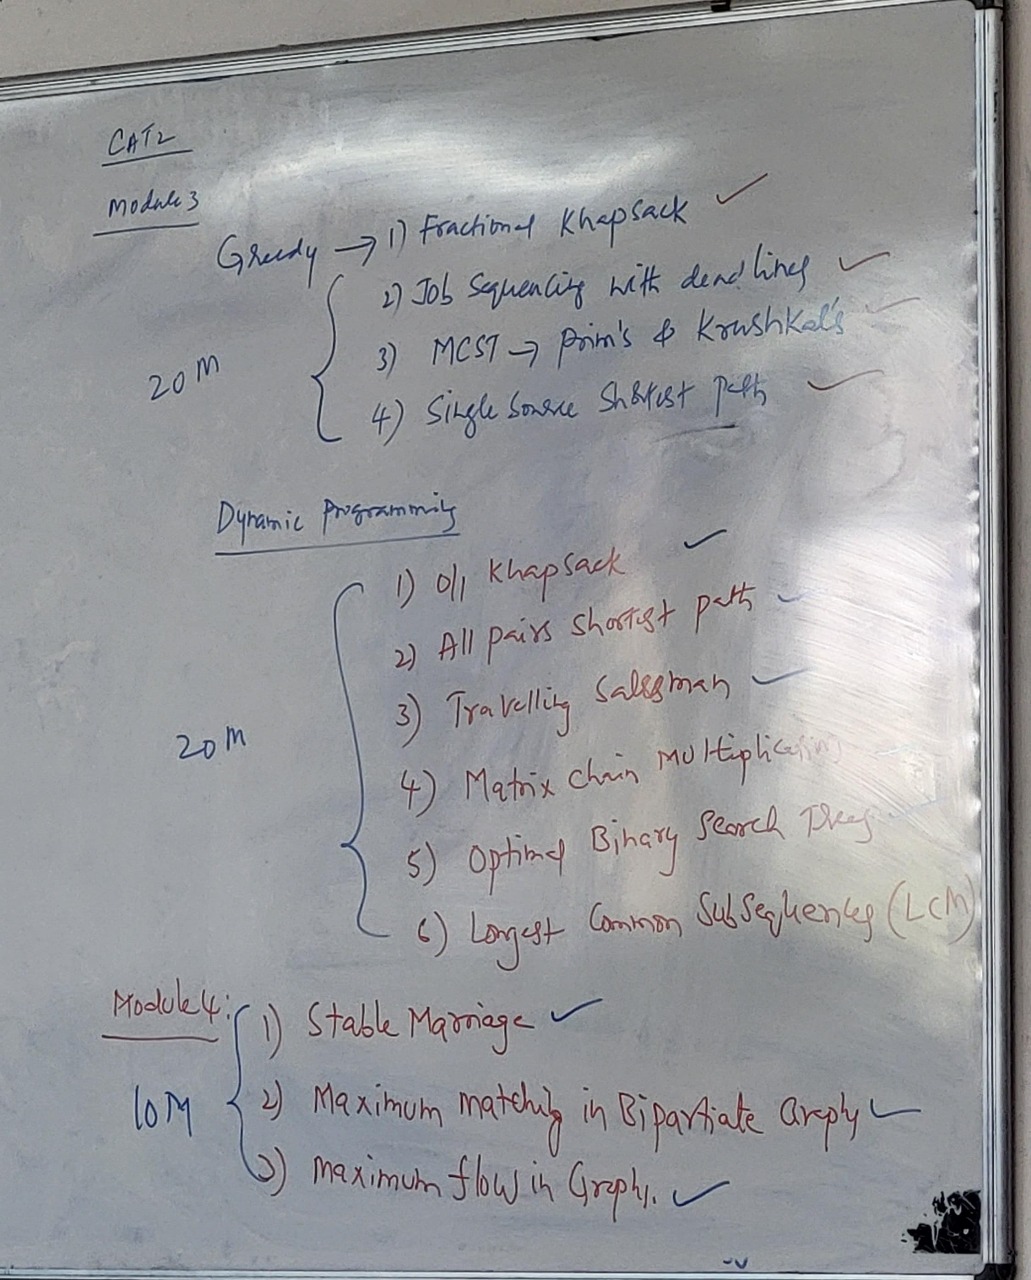 CAT2
Module 3
Greedy → 1) Fractional Khapsack ✓
2) Job Sequencing with deadlines ✓
20 M
3) MCST → prim's & Krushkal's ✓
4) Single Source Shortest path ✓
Dynamic Programming
1) 0/1 Khapsack ✓
2) All pairs shortest path ✓
3) Travelling Salesman ✓
20 M
4) Matrix chain Multiplication
5) Optimal Binary Search Trees
6) Longest Common Subsequences (LCM)
Module 4:
1) Stable Marriage ✓
10 M
2) Maximum matching in Bipartiate Graphs ✓
3) Maximum flow in Graphs. ✓